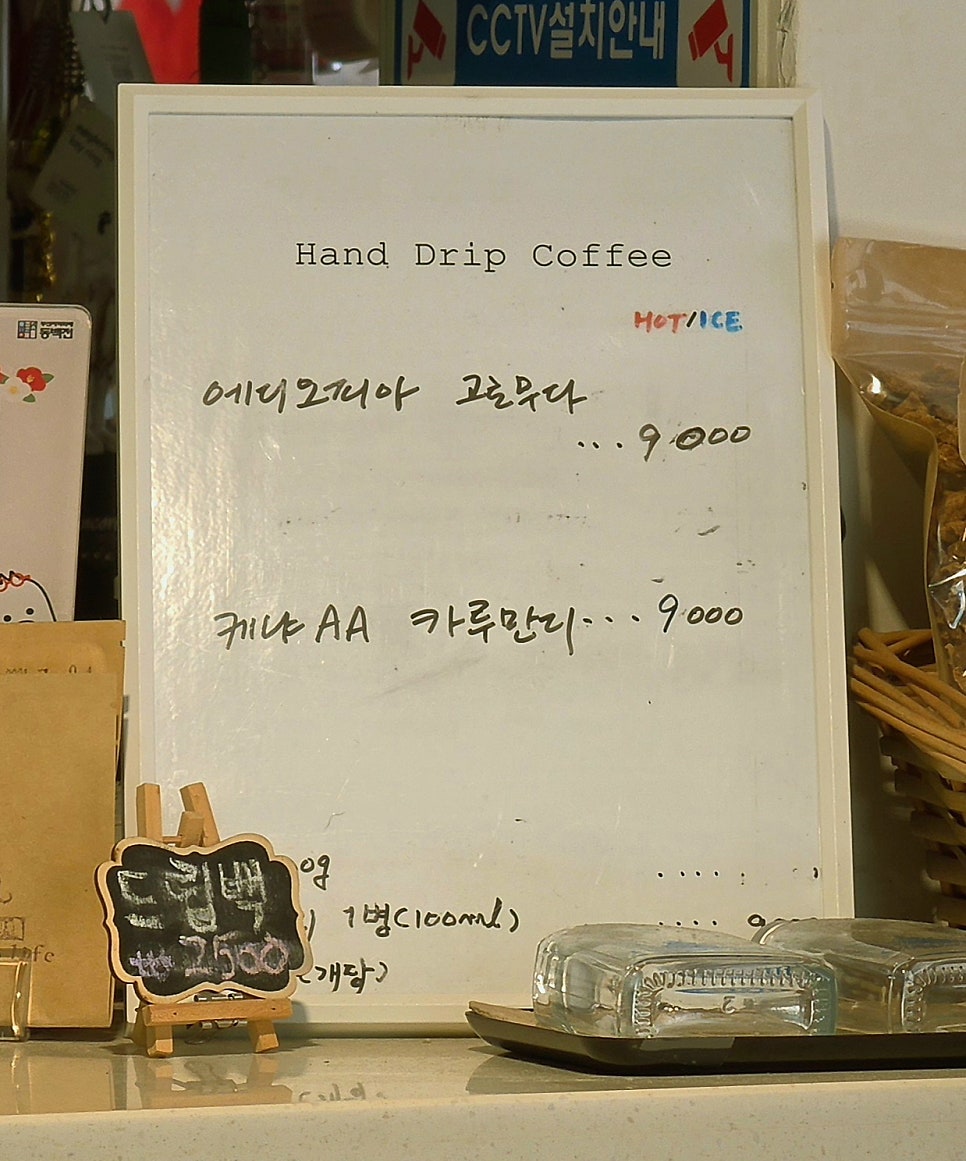 CCTV설치안내
Hand Drip Coffee
HOT/ICE
에디오피아 코케무다
... 9.000
케냐AA 카루만디... 9.000
0g ....
1병(100ml) ....
(개당)
드립백
2500
동백전
Life